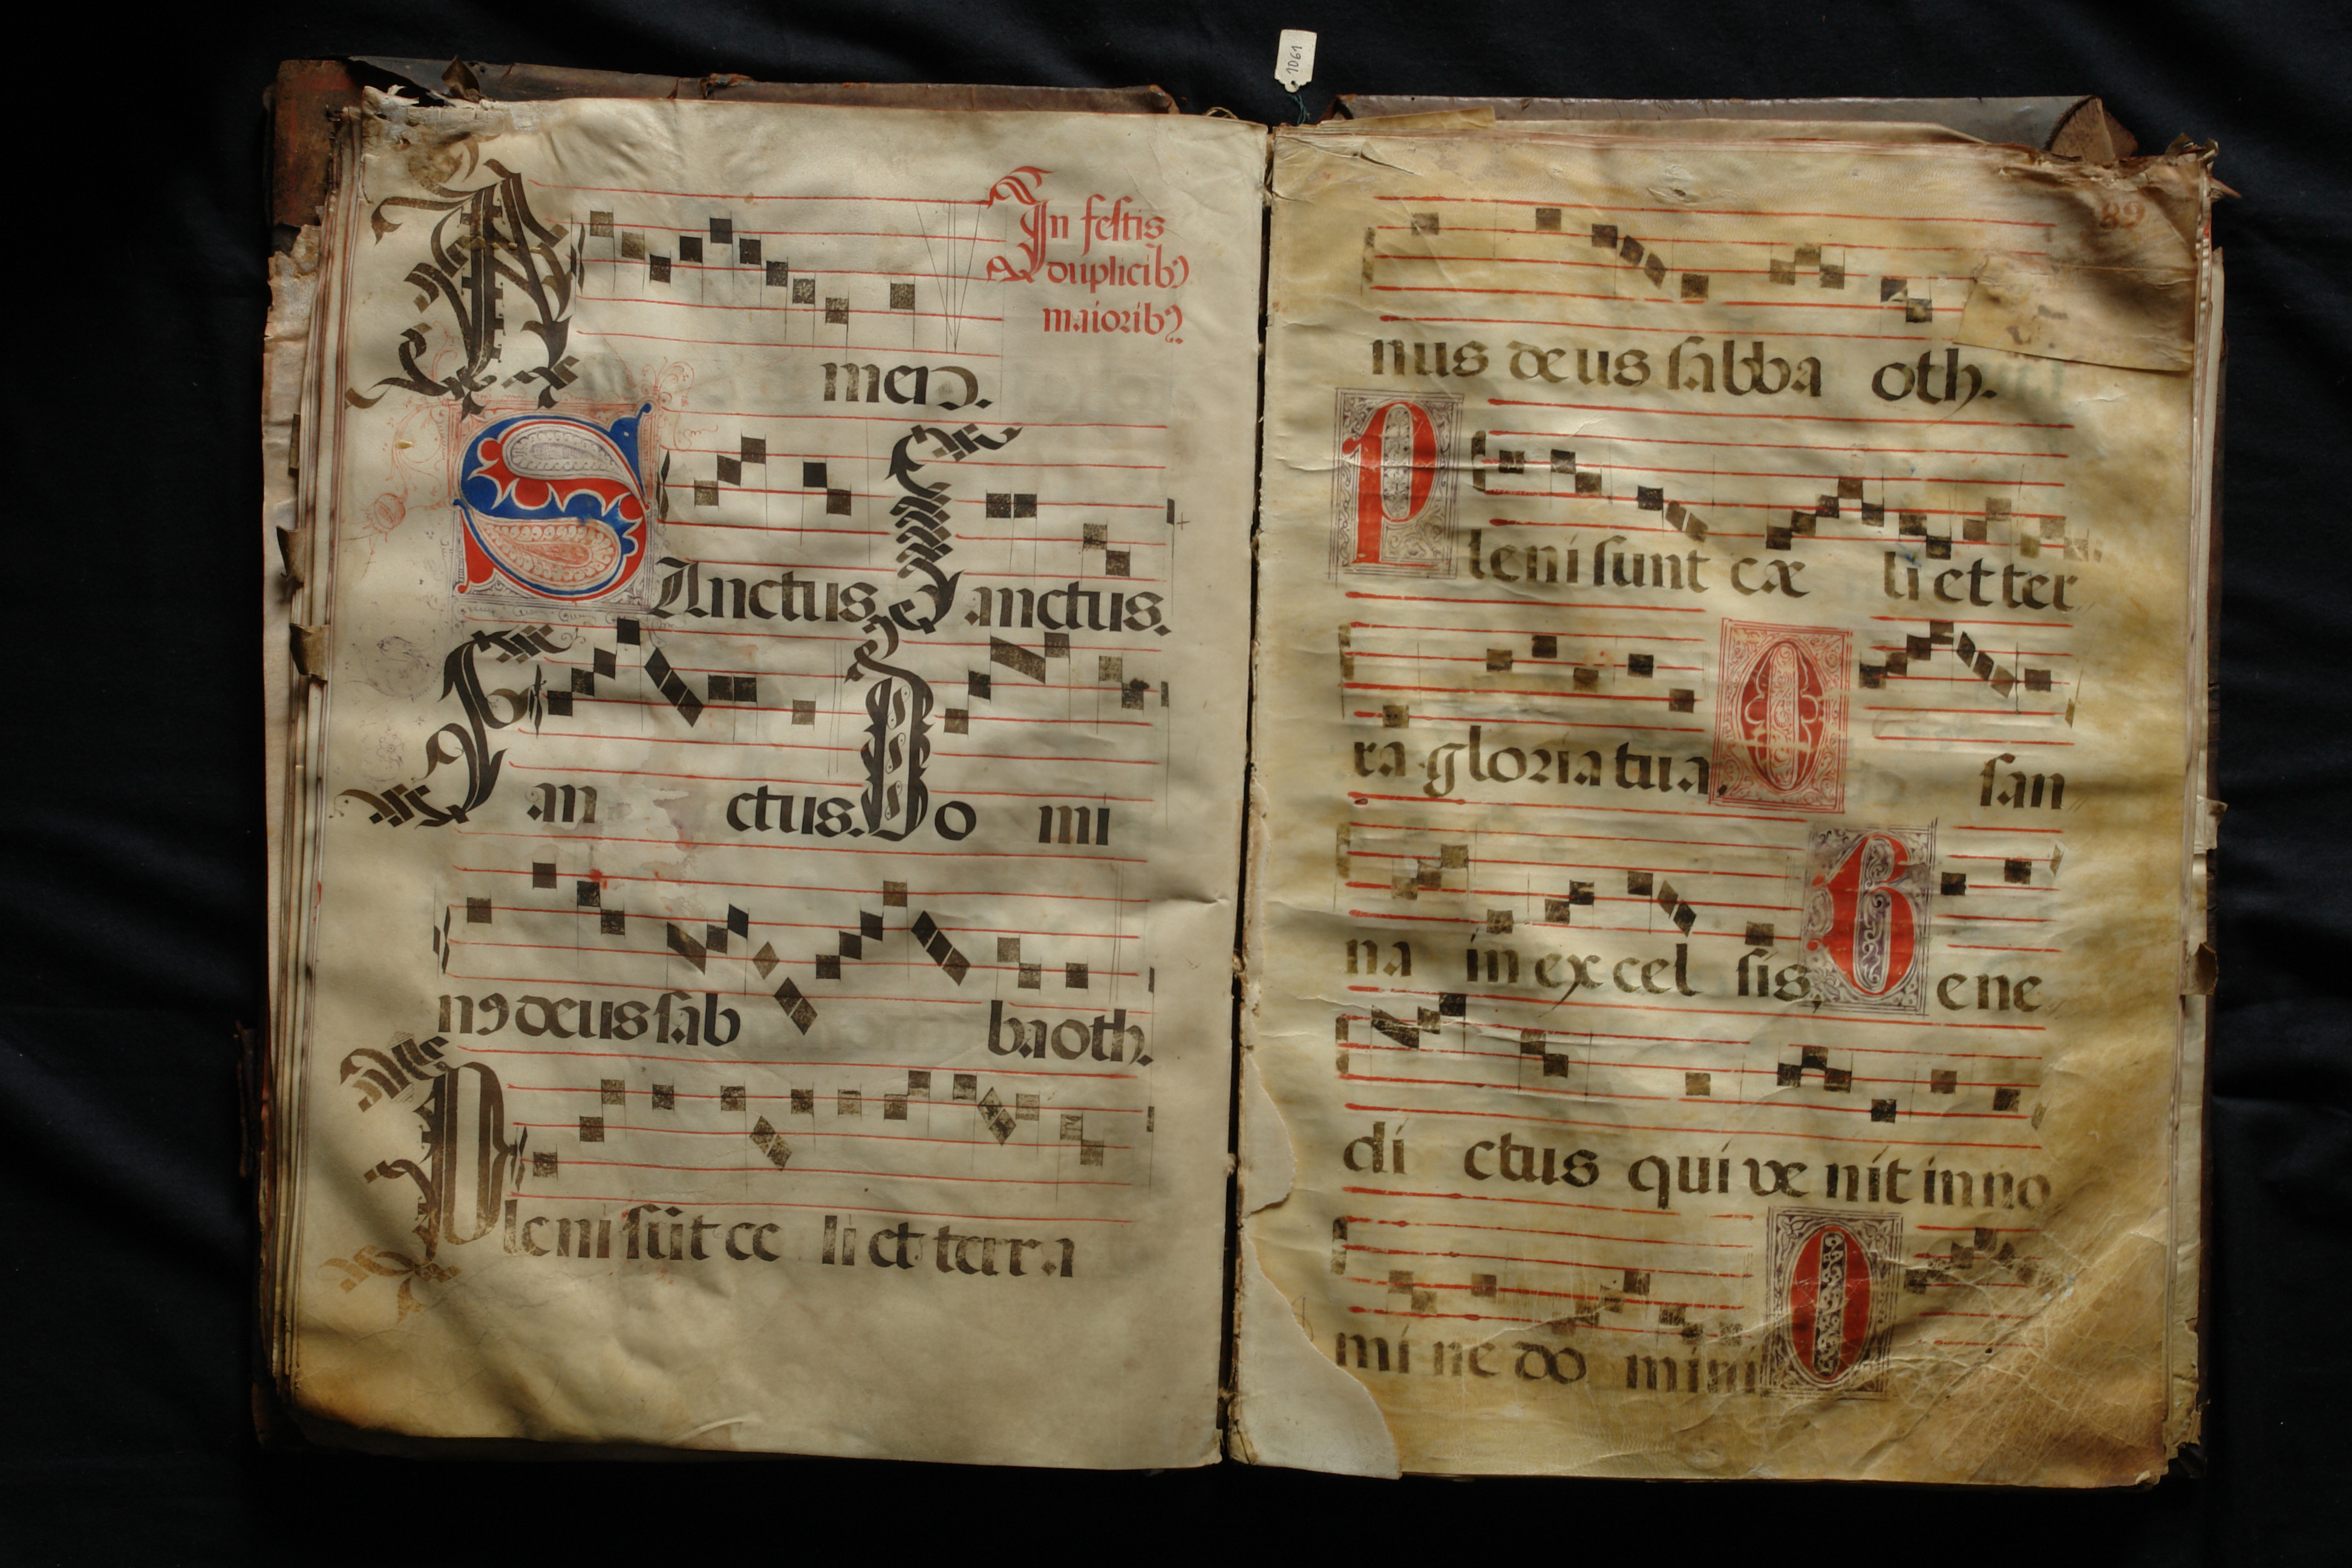 1061
In festis
duplicibꝰ
maioribꝰ.
A men.
SAnctus Sanctus.
San ctus. Do mi
nꝰ deus sab baoth.
Pleni sūt ce li et terra
89
nus deus sabba oth.
Pleni sunt cæ li et ter
ra gloria tua. O san
na in excel sis. Bene
di ctus qui ve nit in no
mi ne do mini O